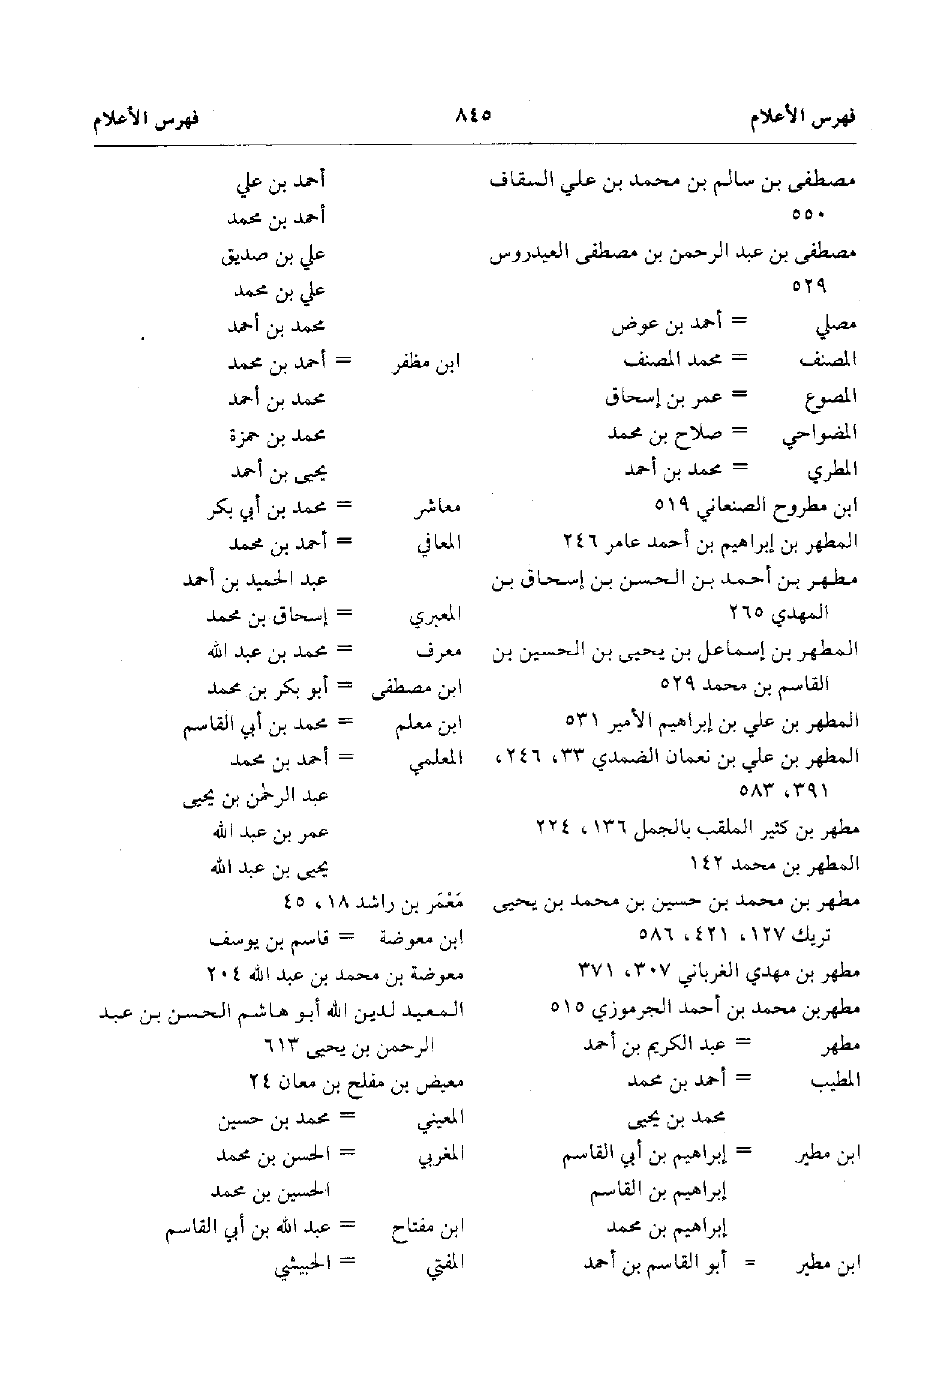 فهرس الأعلام ٨٤٥ فهرس الأعلام
مصطفى بن سالم بن محمد بن علي السقاف
٥٥٠
مصطفى بن عبد الرحمن بن مصطفى العيدروس
٥٢٩
مصلي = أحمد بن عوض
المصنف = محمد المصنف
المصوع = عمر بن إسحاق
المضواحي = صلاح بن محمد
المطري = محمد بن أحمد
ابن مطروح الصنعاني ٥١٩
المطهر بن إبراهيم بن أحمد عامر ٢٤٦
مطهر بن أحمد بن الحسن بن إسحاق بن
المهدي ٢٦٥
المطهر بن إسماعل بن يحيى بن الحسين بن
القاسم بن محمد ٥٢٩
المطهر بن علي بن إبراهيم الأمير ٥٣١
المطهر بن علي بن نعمان الضمدي ٣٣، ٢٤٦،
٣٩١، ٥٨٣
مطهر بن كثير الملقب بالجمل ١٣٦، ٢٢٤
المطهر بن محمد ١٤٢
مطهر بن محمد بن حسين بن محمد بن يحيى
تريك ١٢٧، ٤٢١، ٥٨٦
مطهر بن مهدي الغرباني ٣٠٧، ٣٧١
مطهربن محمد بن أحمد الجرموزي ٥١٥
مطهر = عبد الكريم بن أحمد
المطيب = أحمد بن محمد
محمد بن يحيى
ابن مطير = إبراهيم بن أبي القاسم
إبراهيم بن القاسم
إبراهيم بن محمد
ابن مطير = أبو القاسم بن أحمد
أحمد بن علي
أحمد بن محمد
علي بن صديق
علي بن محمد
محمد بن أحمد
ابن مظفر = أحمد بن محمد
محمد بن أحمد
محمد بن حمزة
يحيى بن أحمد
معاشر = محمد بن أبي بكر
المعافي = أحمد بن محمد
عبد الحميد بن أحمد
المعبري = إسحاق بن محمد
معرف = محمد بن عبد الله
ابن مصطفى = أبو بكر بن محمد
ابن معلم = محمد بن أبي القاسم
المعلمي = أحمد بن محمد
عبد الرحمٰن بن يحيى
عمر بن عبد الله
يحيى بن عبد الله
مَعْمَر بن راشد ١٨، ٤٥
ابن معوضة = قاسم بن يوسف
معوضة بن محمد بن عبد الله ٢٠٤
المعيد لدين الله أبو هاشم الحسن بن عبد
الرحمن بن يحيى ٦١٣
معيض بن مفلح بن معان ٢٤
المعيني = محمد بن حسين
المغربي = الحسن بن محمد
الحسين بن محمد
ابن مفتاح = عبد الله بن أبي القاسم
المفتي = الحبيشي